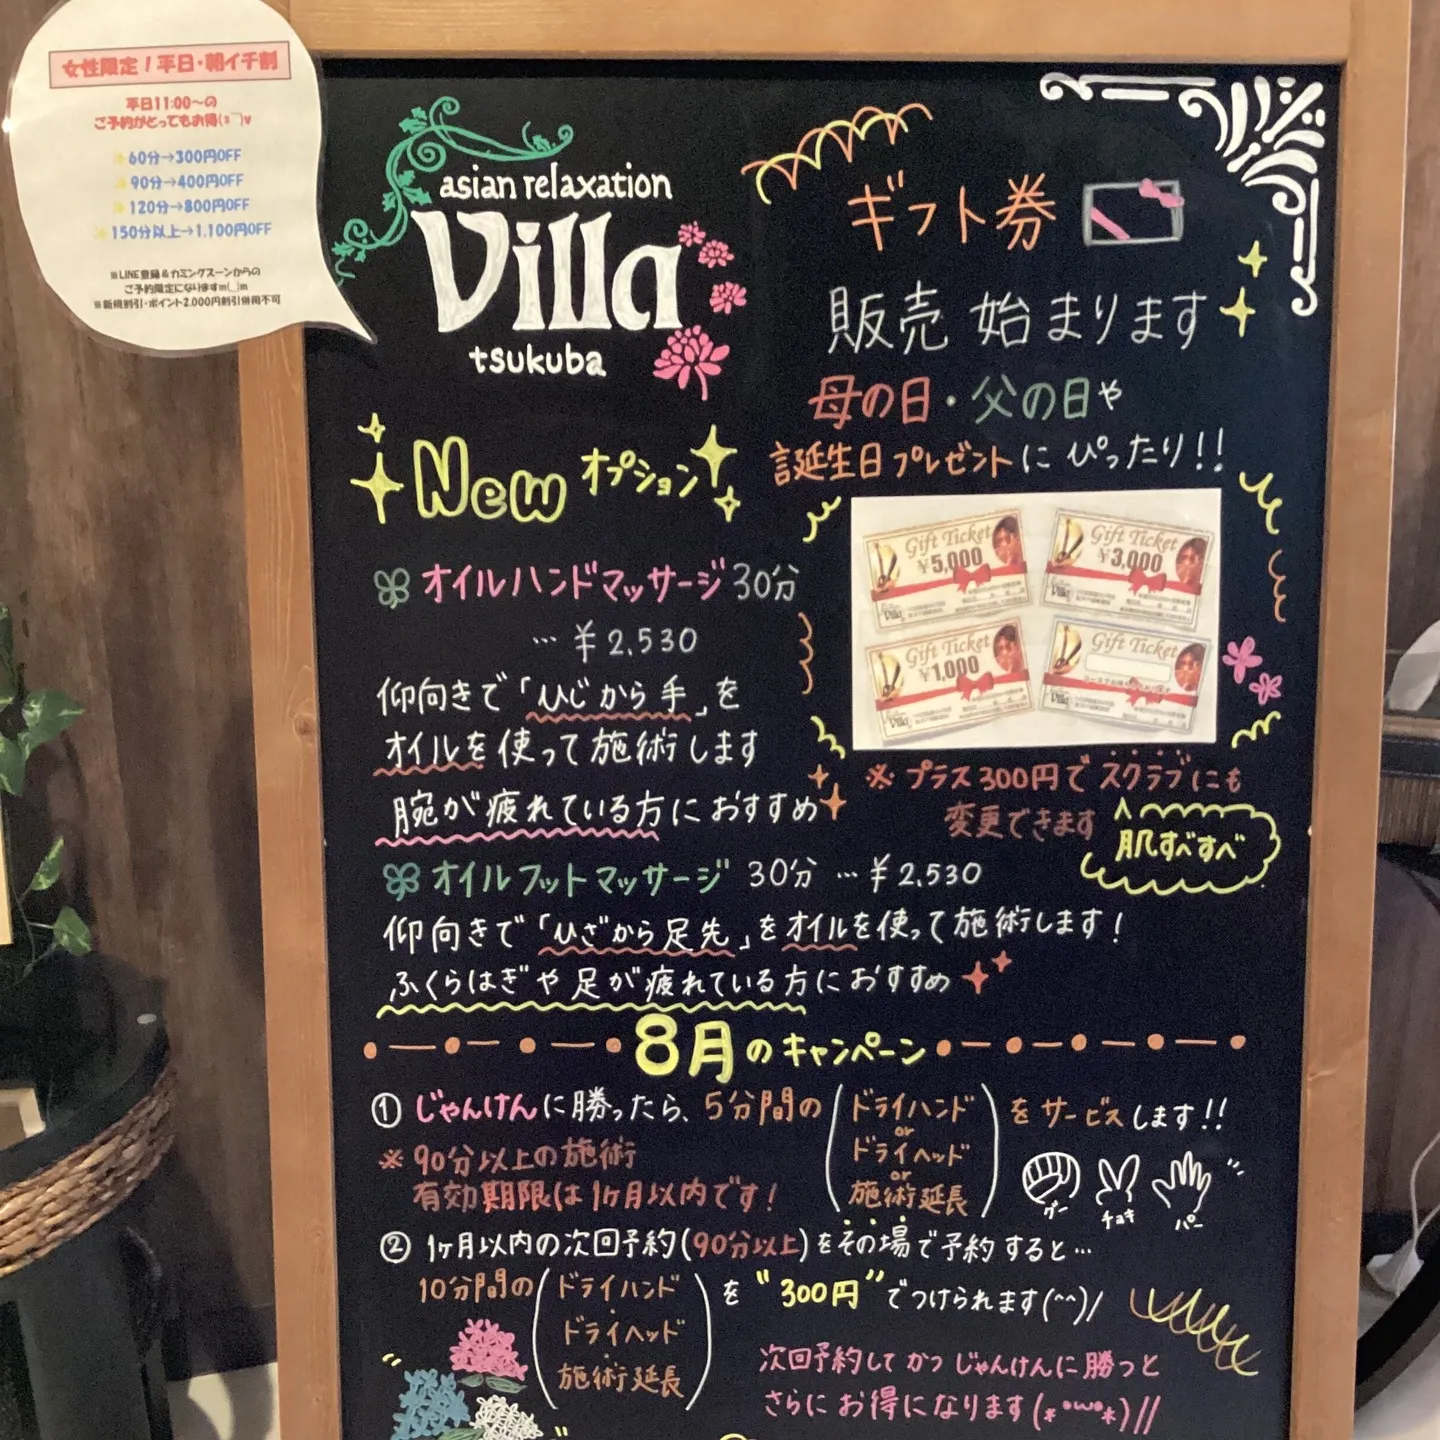 女性限定！平日・朝イチ割
平日11:00〜の
ご予約がとってもお得(*¯︶¯)v
60分→300円OFF
90分→400円OFF
120分→800円OFF
150分以上→1,100円OFF
※LINE登録＆カミングスーンからの
ご予約限定になりますm(_)m
※新規割引・ポイント2,000円割引併用不可
asian relaxation
Villa
tsukuba
ギフト券
販売 始まります
母の日・父の日や
誕生日プレゼントにぴったり!!
Gift Ticket
¥5,000
Gift Ticket
¥3,000
Gift Ticket
¥1,000
Gift Ticket
※プラス300円でスクラブにも
変更できます
肌すべすべ
New オプション
オイルハンドマッサージ 30分
… ¥2,530
仰向きで「ひじから手」を
オイルを使って施術します
腕が疲れている方におすすめ
オイルフットマッサージ 30分 … ¥2,530
仰向きで「ひざから足先」をオイルを使って施術します!
ふくらはぎや足が疲れている方におすすめ
8月のキャンペーン
① じゃんけんに勝ったら、5分間の(ドライハンド or ドライヘッド or 施術延長)をサービスします!!
※90分以上の施術
有効期限は1ヶ月以内です!
グー チョキ パー
② 1ヶ月以内の次回予約(90分以上)をその場で予約すると…
10分間の(ドライハンド・ドライヘッド・施術延長)を"300円"でつけられます(^^)/
次回予約してかつじゃんけんに勝つと
さらにお得になります(*°ω°*)//